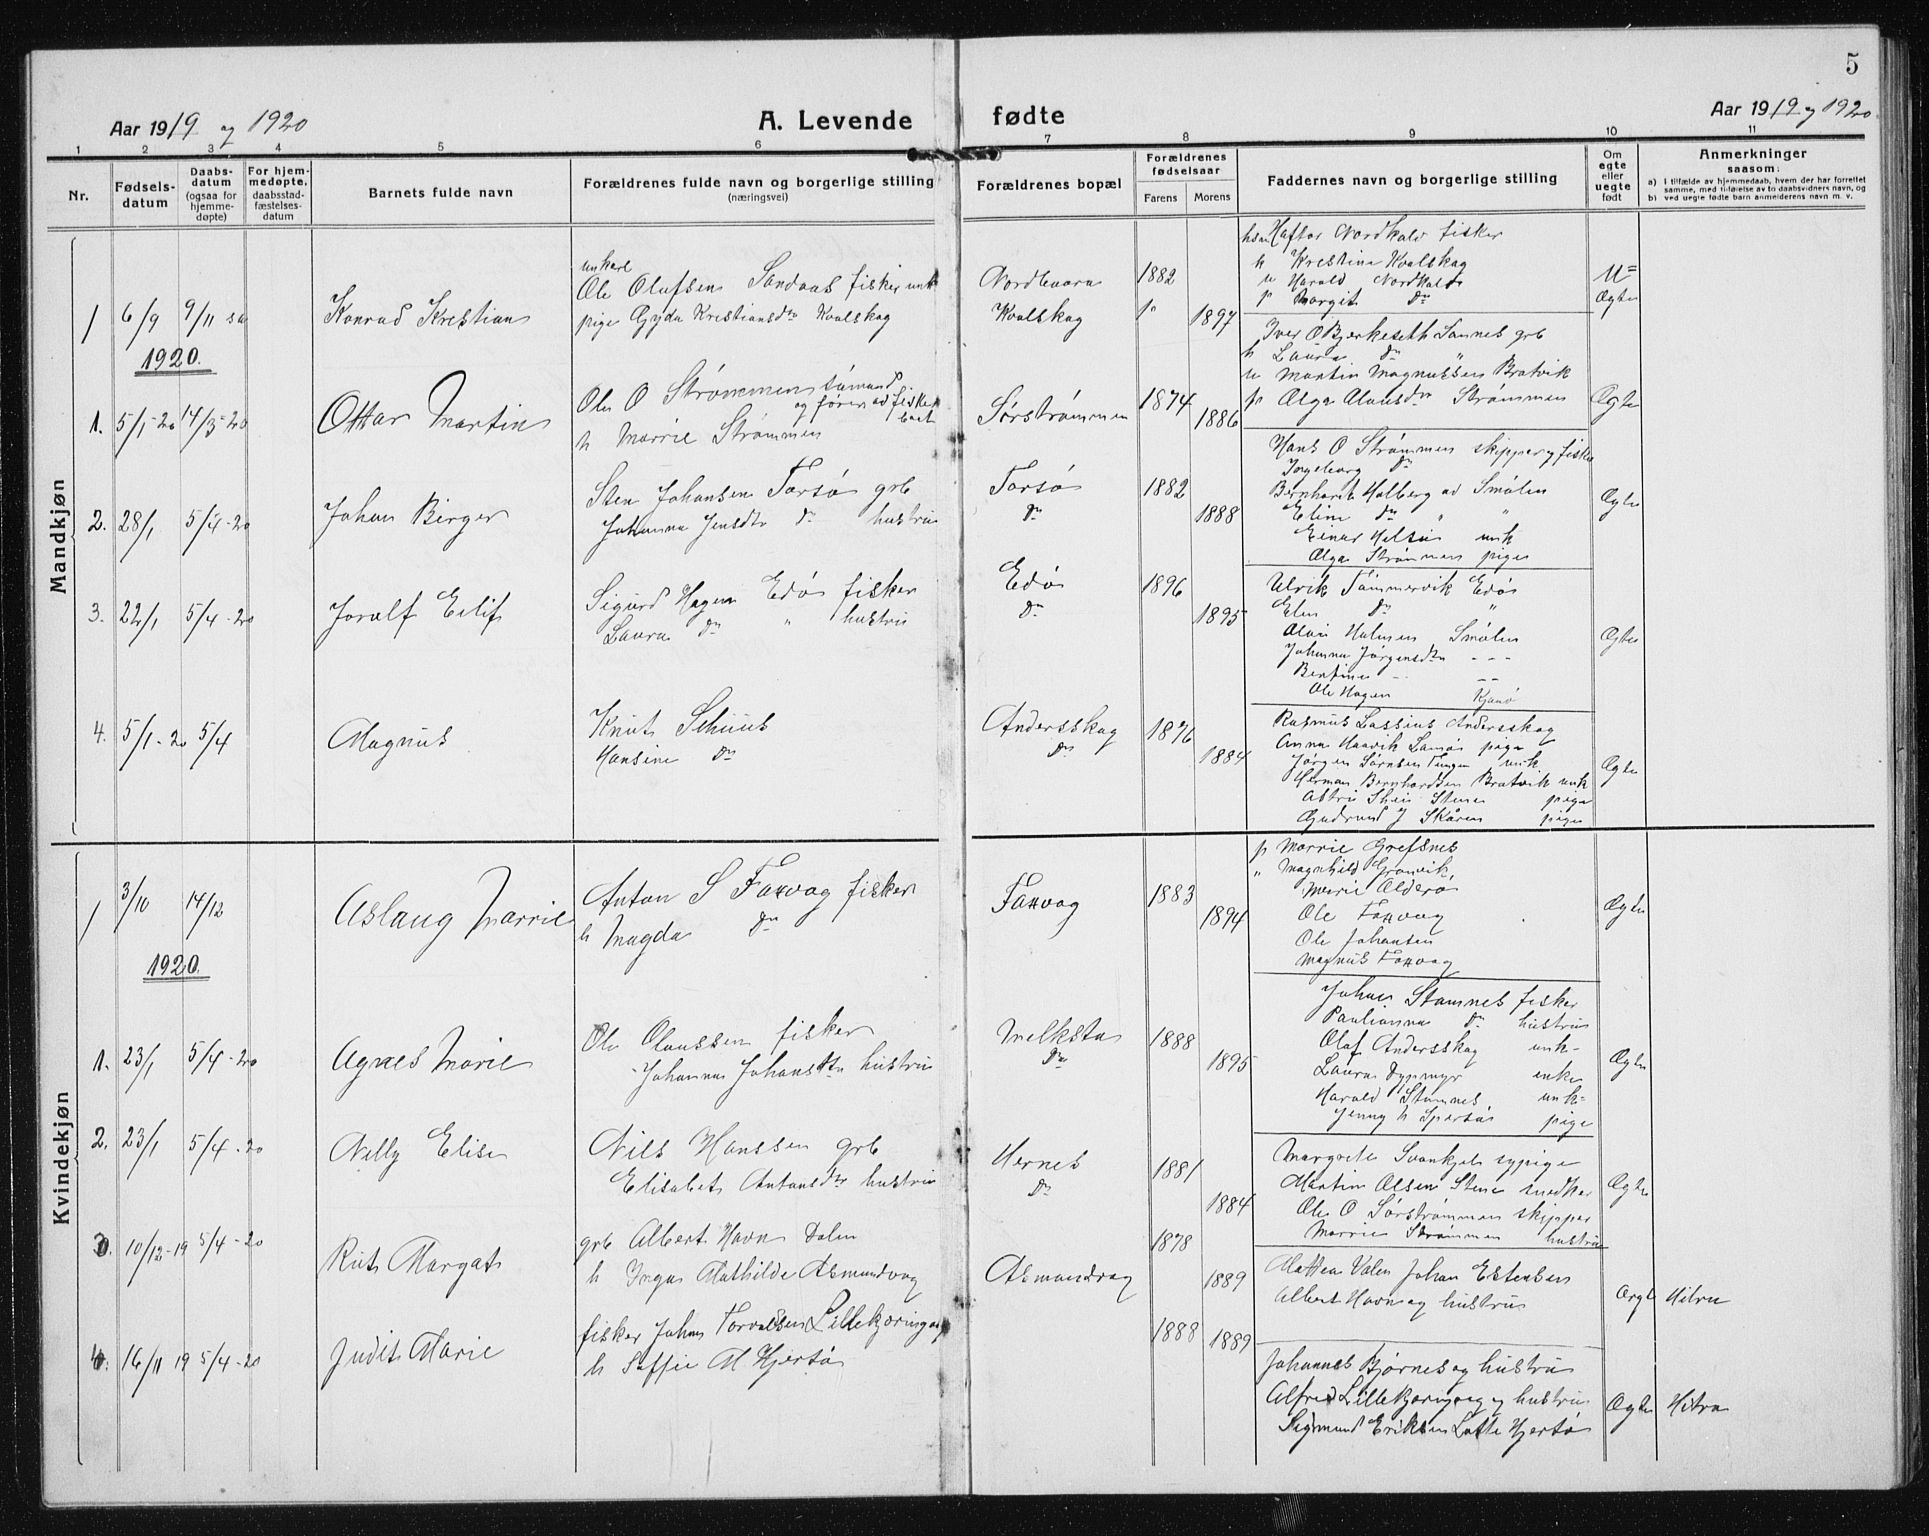 5
Aar 1919 og 1920
A. Levende fødte
Aar 1919 og 1920
1 2 3 4 5 6 7 8 9 10 11
Nr.
Fødsels-datum
Daabs-datum (ogsaa for hjemme-døpte)
For hjem-medøpte, daabsstad-fæstelses-datum
Barnets fulde navn
Forældrenes fulde navn og borgerlige stilling
(næringsvei)
Forældrenes bopæl
Forældrenes fødselsaar
Farens Morens
Faddernes navn og borgerlige stilling
Om egte eller uegte født
Anmerkninger
saasom:
a) I tilfælde av hjemmedaab, hvem der har forrettet samme, med tilføielse av to daabsvidners navn, og
b) ved uegte fødte barn anmelderens navn m. v.
Mandkjøn
1 6/9 9/11 Konrad Kristian
unkarl
Ole Olufsen Sandaas fisker unk
pige Gyda Kristiansdtr Kvalskag
Kvalskag
1882 1897
Haftor Nordkald fisker
h Kristine Kvalskag
u Harald Nordkald
p Margit Do
U=
Ægte
1920.
1. 5/1-20 14/3-20 Ottar Martin
Ole O Strømmen
og fører ad fisker
h Marrie Strømmen
Sørstrømmen
1874 1886
Iver O Bjerkeseth Sannes grb
h Laura Do "
u Martin Magnussen Bratvik
p Olga Strømmen
Ægte
2. 28/1 5/4-20 Johan Birger
Sten Johansen Torsø grb
Johanna Jensdtr Do hustru
Torsø
Do
1882 1888
Hans O Strømmen skipper og fisker
Ingeborg Do
Bernhard Holberg Smølen
Eline Do " "
Einar unk
Olga Strømmen pige
Ægte
3. 22/1 5/4-20 Joralf Eilif
Sigurd Hagen Edø fisker
Laura Do " hustru
Edø
Do
1896 1895
Ulrik Tømmervik Edø
Elen Do "
Holmen Smølen
Johanna Jørgensdtr - - -
Bentine - - -
Ole Hagen
Ægte
4. 5/1-20 5/4 Magnus
Knut Schius
Hansine Do
Andersskag
Do
1876 1884
Rasmus Lassius Andersskag
Anna Haavik pige
Jørgen Sørnsen unk
Herman Bernhardsen Bratvik unk
Stene pige
Gudrund J Skåren pige
Ægte
Kvindekjøn
1 3/10 14/12 Aslaug Marrie
Anton S Foxvag fisker
h Magda Do
Foxvag
1883 1894
p Marrie Grefsnes
" Magnhild Granvik,
Marie Alderø
Ole Foxvag
Ole Johansen
Magnus Foxvag
Ægte
1920.
1. 23/1 5/4-20 Agnes Marie
Ole Olaussen fisker
Johanna Johansdtr hustru
Melksta
Do
1888 1895
Johan Stamnes fisker
Paulianna Do hustru
Olaf Andersskag unk-
Laura Dypmyr enke
Harald Stamnes unk=
Jenny pige
Ægte
2. 23/1 5/4-20 Nelly Elise
Nils Hanssen grb
Elisabet Antonsdtr hustru
Hernes
Do
1881 1884
Margrete Svankjel sypige
Martin Olsen Stene snedker
Ole O Sørstrømmen skipper
Marrie Strømmen hustru
Ægte
3. 10/12-19 5/4-20 Rut Margat
grb Albert Havn Dalen
h Inga Mathilde Asmundvag
Asmundvag
1878 1889
Mattea Valen Johan Estensen
Albert Havn og hustru
Ægte Hitra
4. 16/11 19 5/4-20 Judit Marie
fisker Johan Torvalsen Lillekjøringvag
h Soffie M Hjertø
1888 1889
Johannes Bjørnes og hustru
Alfred Lillekjøringvag og hustru
Sigmund Eriksen Lotte Hjertø
Ægte Hitra